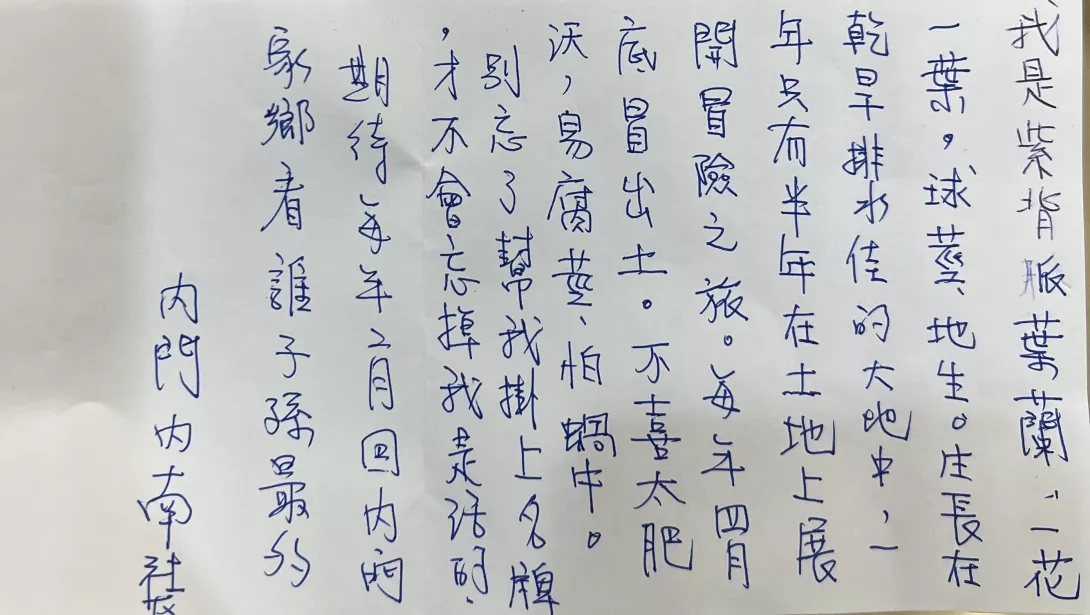 我是紫背脈葉蘭、一花
一葉,球莖、地生。生長在
乾旱排水佳的大地中,一
年只有半年在土地上展
開冒險之旅。每年四月
底冒出土。不喜太肥
沃,易腐莖、怕蝸牛。
別忘了幫我掛上名牌
,才不會忘掉我是活的、
期待每年二月回內門
家鄉看誰子孫最多
內門內南社